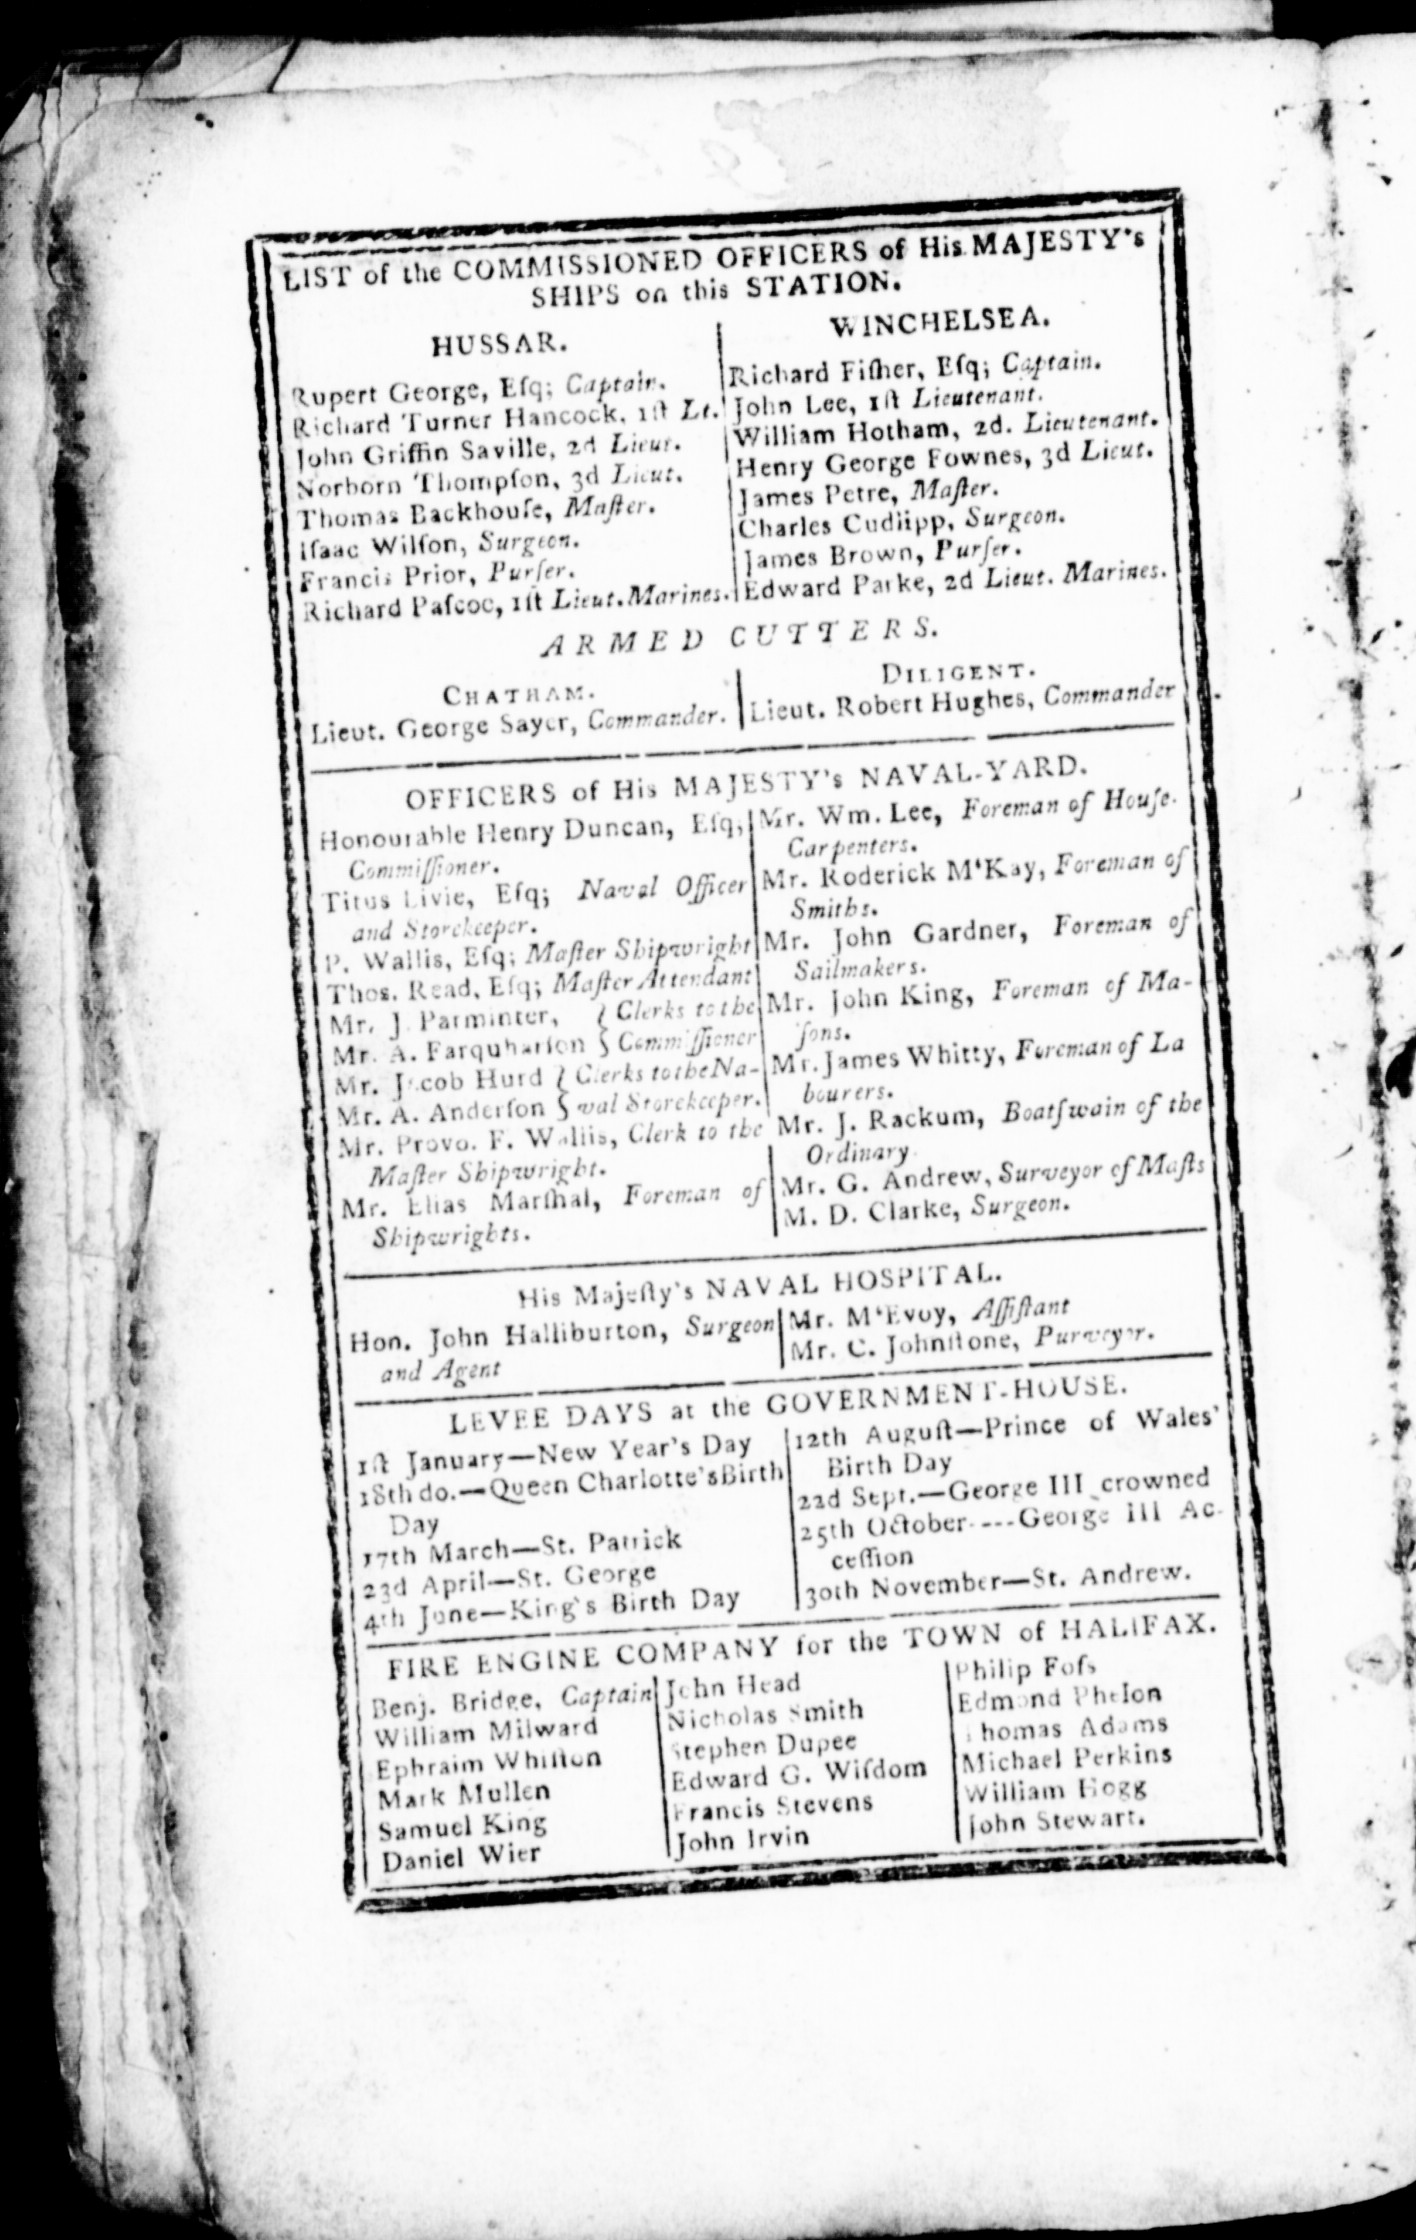 LIST of the COMMISSIONED OFFICERS of His MAJESTY's
SHIPS on this STATION.
HUSSAR.
Rupert George, Eſq; Captain.
Richard Turner Hancock, 1ſt Lt.
John Griffin Saville, 2d Lieut.
Norborn Thompſon, 3d Lieut.
Thomas Backhouſe, Maſter.
Iſaac Wilſon, Surgeon.
Francis Prior, Purſer.
Richard Paſcoe, 1ſt Lieut. Marines.
WINCHELSEA.
Richard Fiſher, Eſq; Captain.
John Lee, 1ſt Lieutenant.
William Hotham, 2d. Lieutenant.
Henry George Fownes, 3d Lieut.
James Petre, Maſter.
Charles Cudlipp, Surgeon.
James Brown, Purſer.
Edward Parke, 2d Lieut. Marines.
ARMED CUTTERS.
CHATHAM.
Lieut. George Sayer, Commander.
DILIGENT.
Lieut. Robert Hughes, Commander
OFFICERS of His MAJESTY's NAVAL-YARD.
Honourable Henry Duncan, Eſq,
Commiſſioner.
Titus Livie, Eſq; Naval Officer
and Storekeeper.
P. Wallis, Eſq; Maſter Shipwright
Thos. Read, Eſq; Maſter Attendant
Mr. J. Parminter, } Clerks to the
Mr. A. Farquharſon } Commiſſioner
Mr. Jacob Hurd } Clerks to the Na-
Mr. A. Anderſon } val Storekeeper.
Mr. Provo. F. Wallis, Clerk to the
Maſter Shipwright.
Mr. Elias Marſhal, Foreman of
Shipwrights.
Mr. Wm. Lee, Foreman of Houſe-
Carpenters.
Mr. Roderick M'Kay, Foreman of
Smiths.
Mr. John Gardner, Foreman of
Sailmakers.
Mr. John King, Foreman of Ma-
ſons.
Mr. James Whitty, Foreman of La
bourers.
Mr. J. Rackum, Boatſwain of the
Ordinary.
Mr. G. Andrew, Surveyor of Maſts
M. D. Clarke, Surgeon.
His Majeſty's NAVAL HOSPITAL.
Hon. John Halliburton, Surgeon
and Agent
Mr. M'Evoy, Aſſiſtant
Mr. C. Johnſtone, Purveyor.
LEVEE DAYS at the GOVERNMENT-HOUSE.
1ſt January—New Year's Day
18th do.—Queen Charlotte's Birth
Day
17th March—St. Patrick
23d April—St. George
4th June—King's Birth Day
12th Auguſt—Prince of Wales'
Birth Day
22d Sept.—George III crowned
25th October----George III Ac-
ceſſion
30th November—St. Andrew.
FIRE ENGINE COMPANY for the TOWN of HALIFAX.
Benj. Bridge, Captain
William Milward
Ephraim Whiſton
Mark Mullen
Samuel King
Daniel Wier
John Head
Nicholas Smith
Stephen Dupee
Edward G. Wiſdom
Francis Stevens
John Irvin
Philip Foſs
Edmond Phelon
Thomas Adams
Michael Perkins
William Hogg
John Stewart.